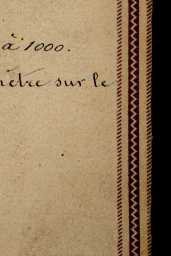 à 1000.
mètre sur le